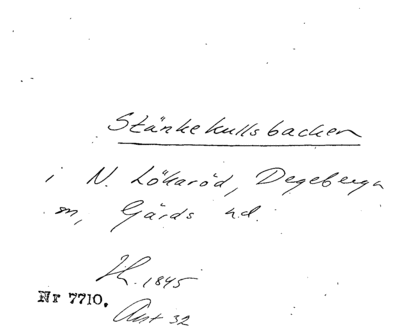 Stänkekullsbacken
i N. Lökaröd, Degeberga
m, Gärds hd.
1845
Nr 7710.
32